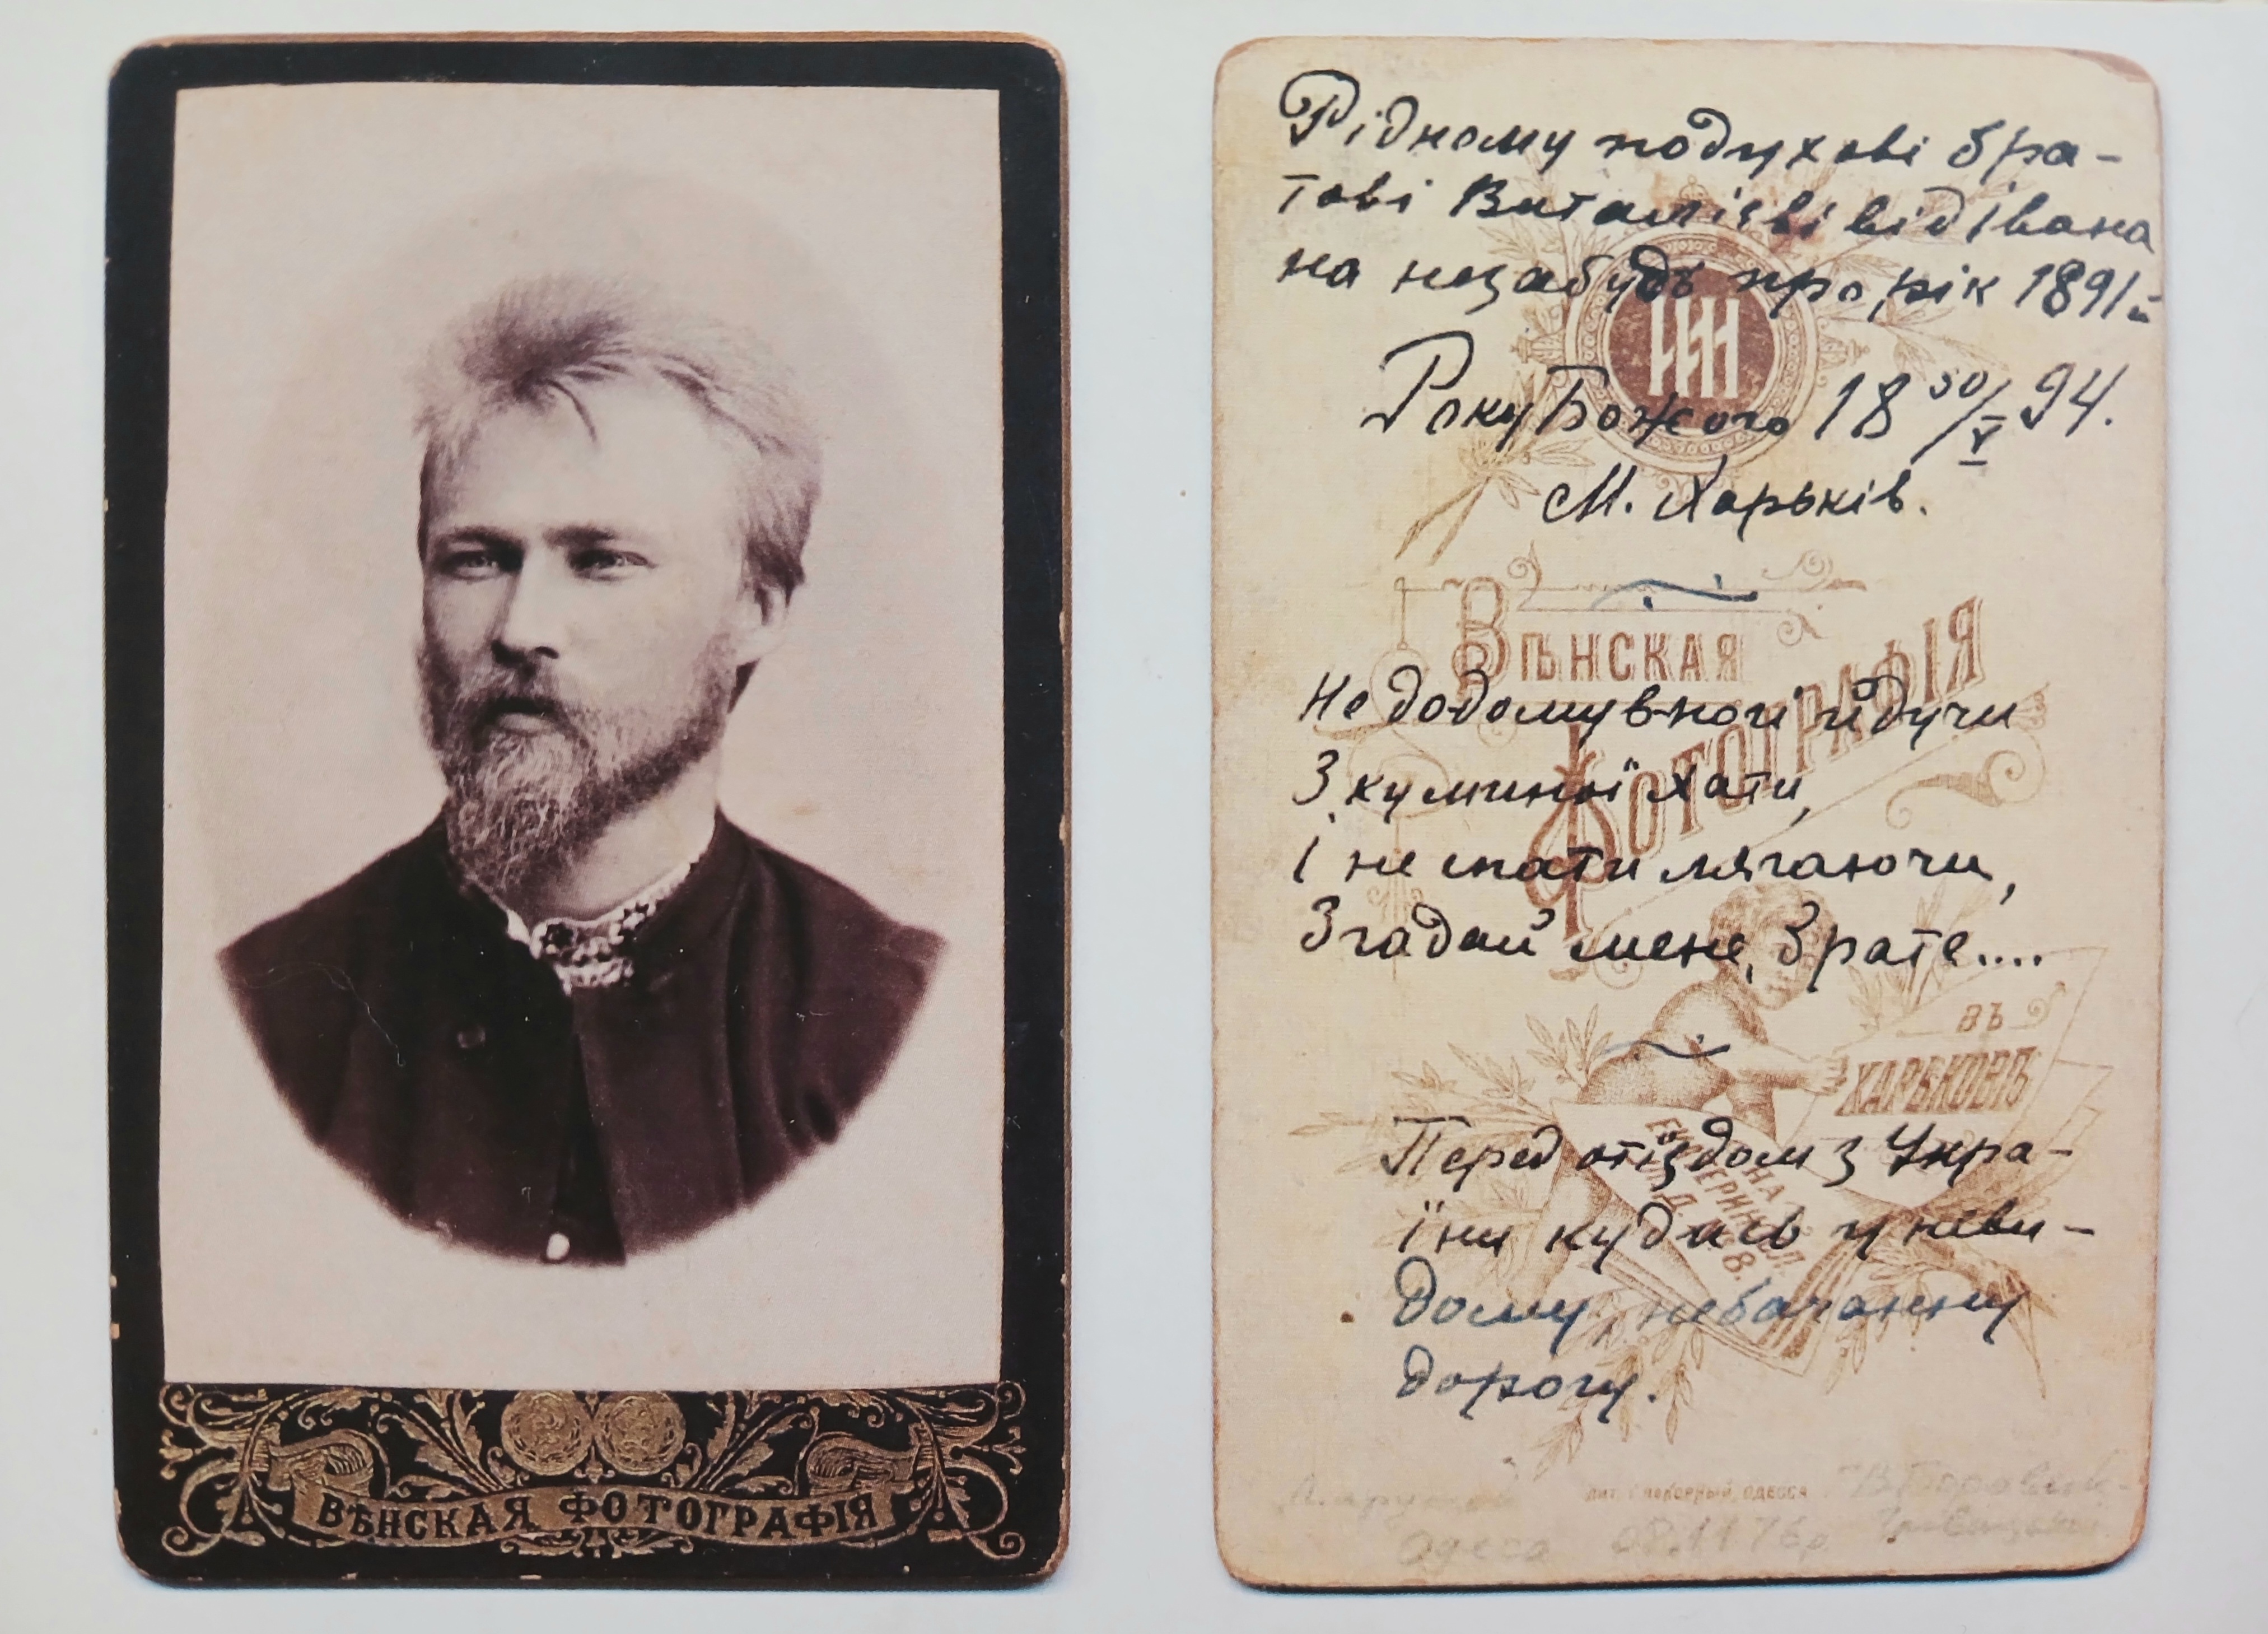 ВѢНСКАЯ ФОТОГРАФІЯ
Рідному подухові бра-
тові Виталієві від Івана
на незабудь про рік 1891й
Року Божого 18 30/V 94.
М. Харьків.
ВѢНСКАЯ
ФОТОГРАФІЯ
Не додому вночі йдучи
З куминої хати,
І не спати лягаючи,
Згадай мене, брате....
ВЪ
ХАРЬКОВѢ
Перед отїздом з Укра-
їни кудись у неви-
дому, небачанну
дорогу.
ОДЕССА
Одеса 08.11.76р.